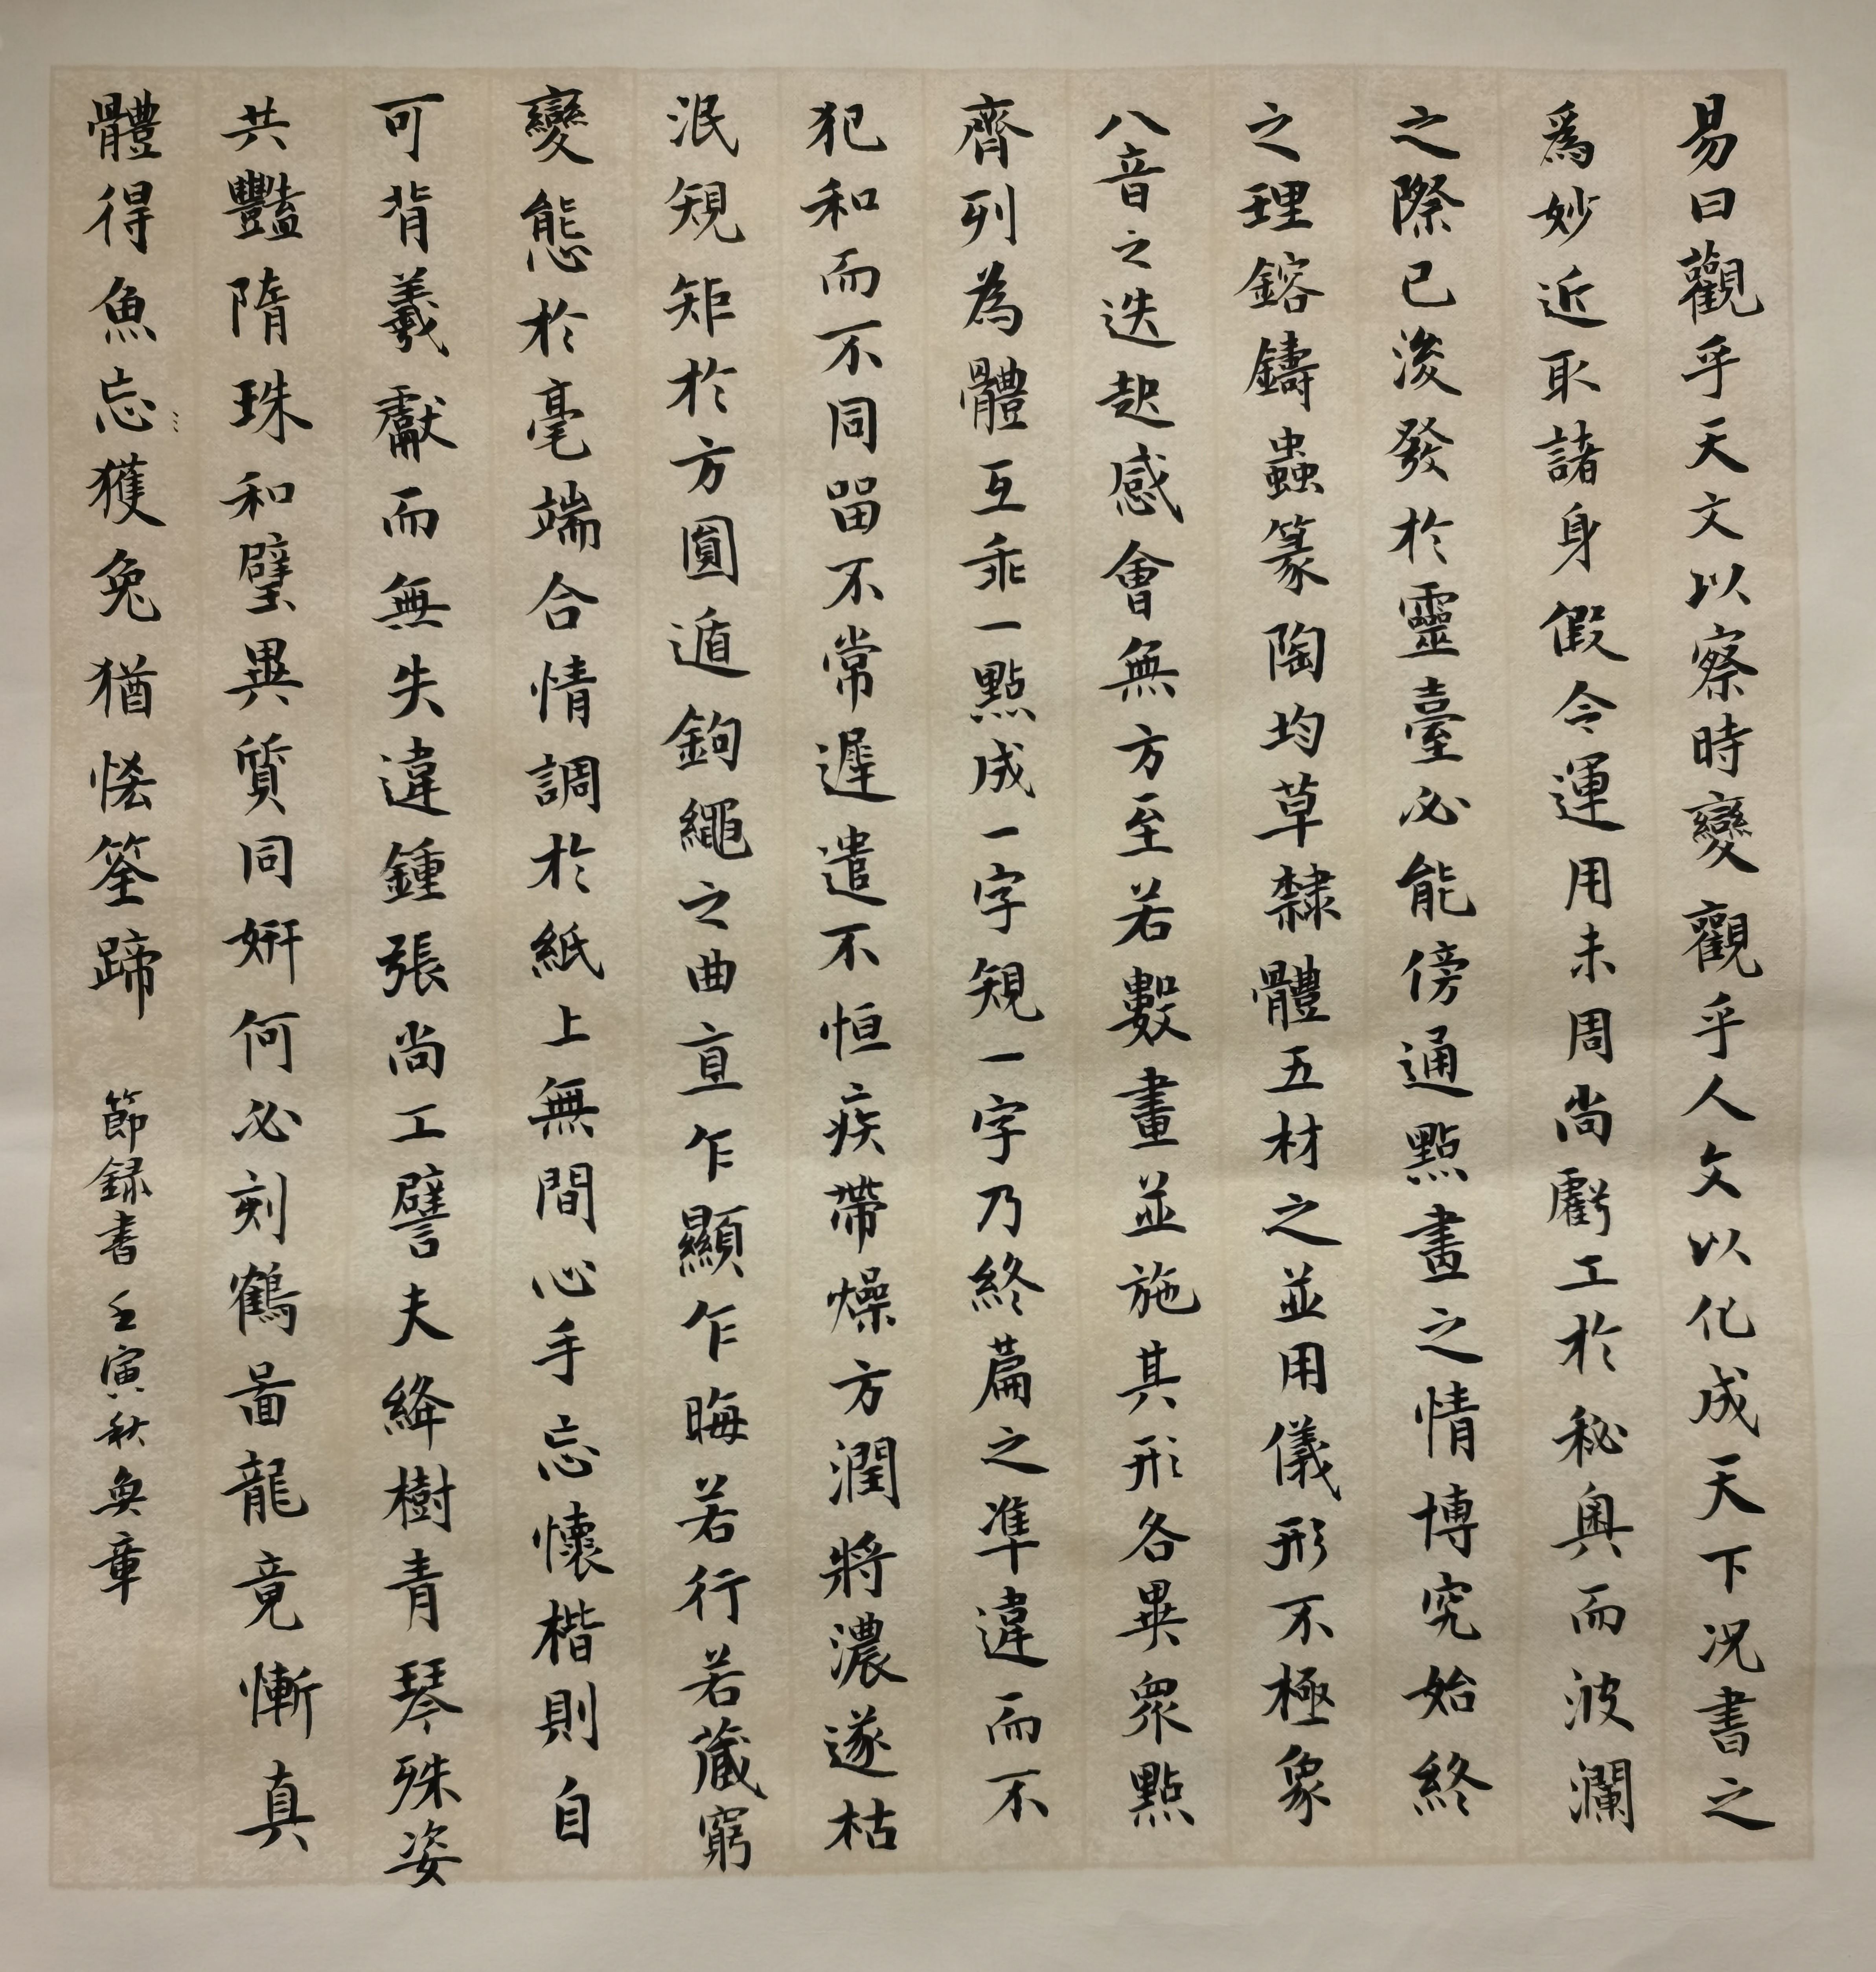 易曰觀乎天文以察時變觀乎人文以化成天下况書之
爲妙近取諸身假令運用未周尚虧工於秘奥而波瀾
之際已浚發於靈臺必能傍通點畫之情博究始終
之理鎔鑄蟲篆陶均草隸體五材之並用儀形不極象
八音之迭起感會無方至若數畫並施其形各異衆點
齊列為體互乖一點成一字規一字乃終篇之準違而不
犯和而不同留不常遲遣不恒疾帶燥方潤將濃遂枯
泯規矩於方圓遁鉤繩之曲直乍顯乍晦若行若藏窮
變態於毫端合情調於紙上無間心手忘懷楷則自
可背羲獻而無失違鍾張尚工譬夫絳樹青琴殊姿
共豔隋珠和璧異質同妍何必刻鶴圖龍竟慚真
體得魚忘獲兔猶恡筌蹄
節録書壬寅秋奂章